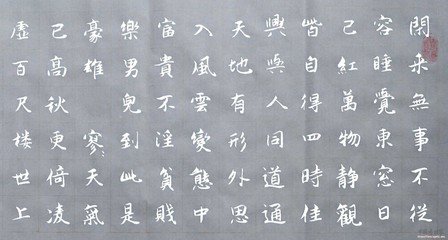 閑来無事不從
容睡覺東窓日
己紅萬物静觀
皆自得四時佳
興與人同道通
天地有形外思
入風雲變態中
富貴不淫貧賤
樂男兒到此是
豪雄寥々天氣
已高秋更倚凌
虛百尺楼世上